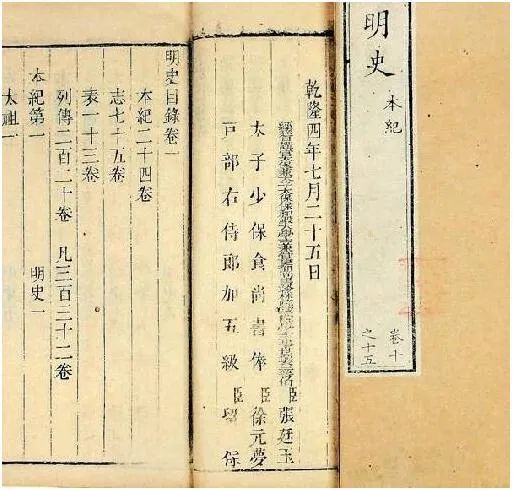 明史
本紀
卷十
之十五
乾隆四年七月二十五日
臣張廷玉
太子少保食尚書俸臣徐元夢
戶部右侍郎加五級留保
明史目錄卷一
本紀二十四卷
志七十五卷
表一十三卷
列傳二百二十卷 凡三百三十二卷
本紀第一 明史一
太祖一